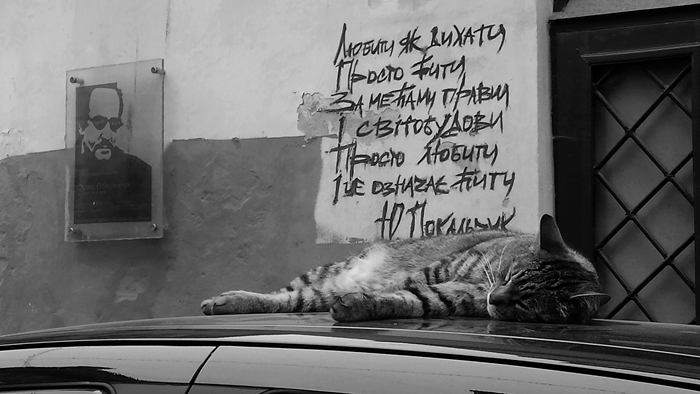 Любити як дихати
Просто жити
За межами правил
І світобудови
Просто любити
І це означає жити
Ю Покальчук